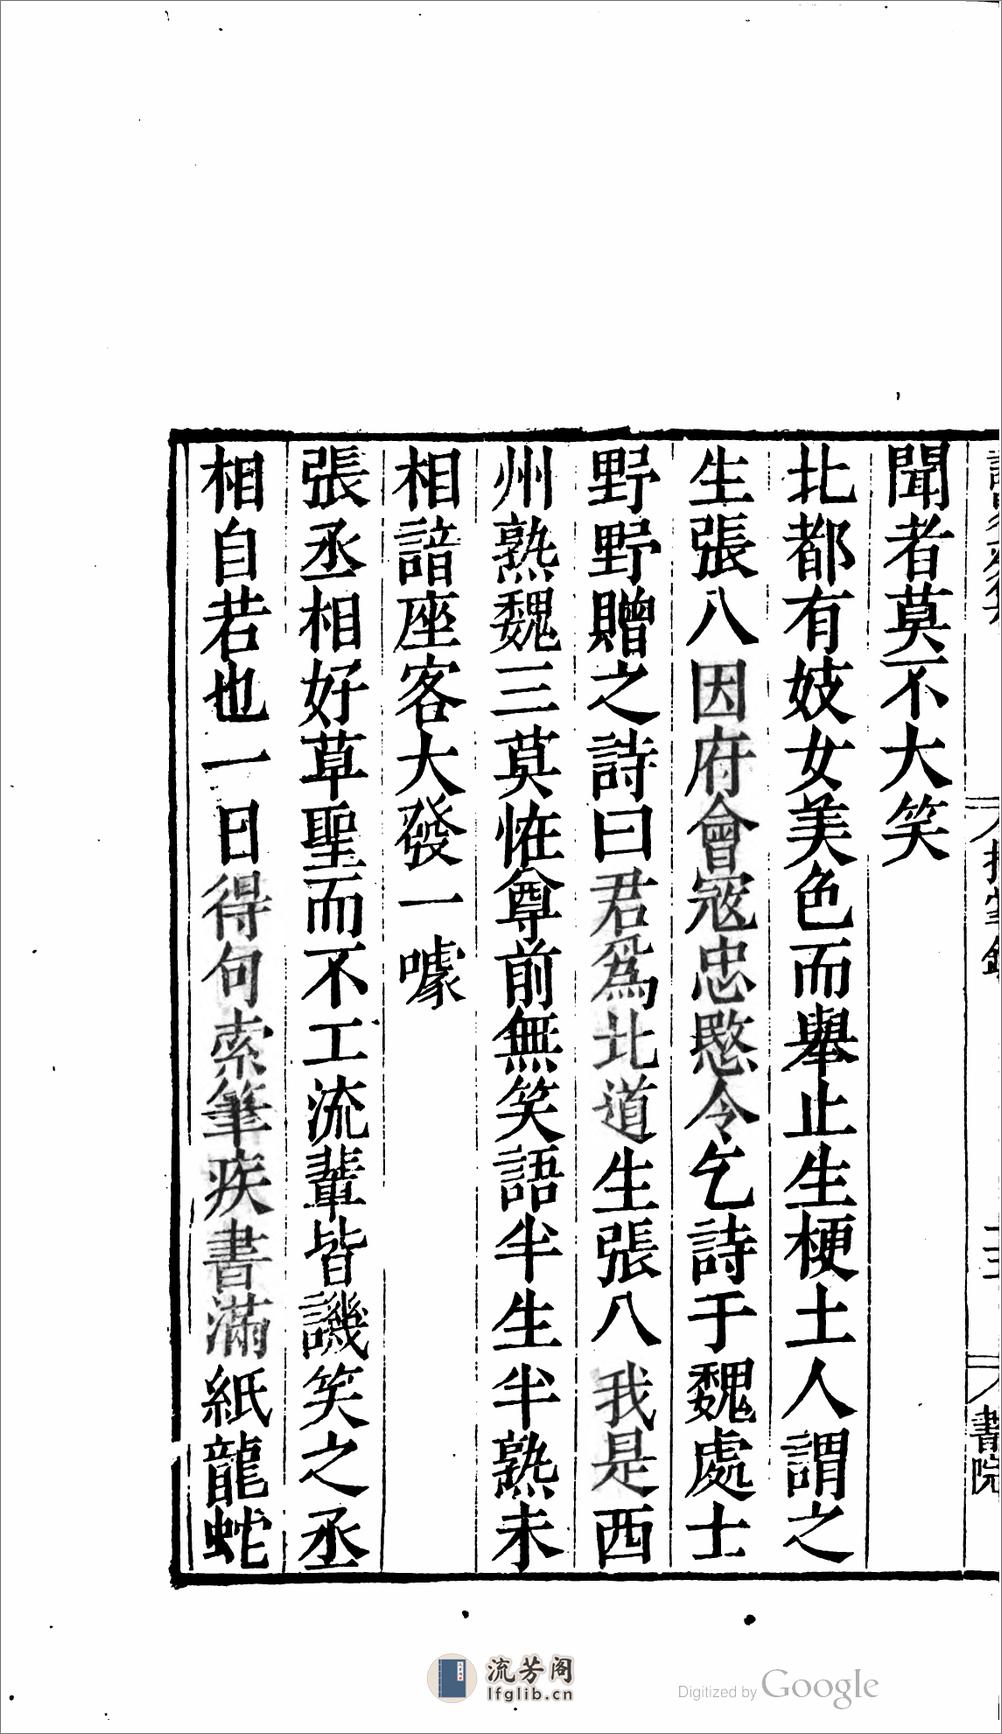 聞者莫不大笑
北都有妓女美色而舉止生梗土人謂之
生張八因府會寇忠愍令乞詩于魏處士
野野贈之詩曰君爲北道生張八我是西
州熟魏三莫恠尊前無笑語半生半熟未
相諳座客大發一噱
張丞相好草聖而不工流輩皆譏笑之丞
相自若也一日得句索筆疾書滿紙龍蛇
書院
流芳阁
lfglib.cn
Digitized by Google